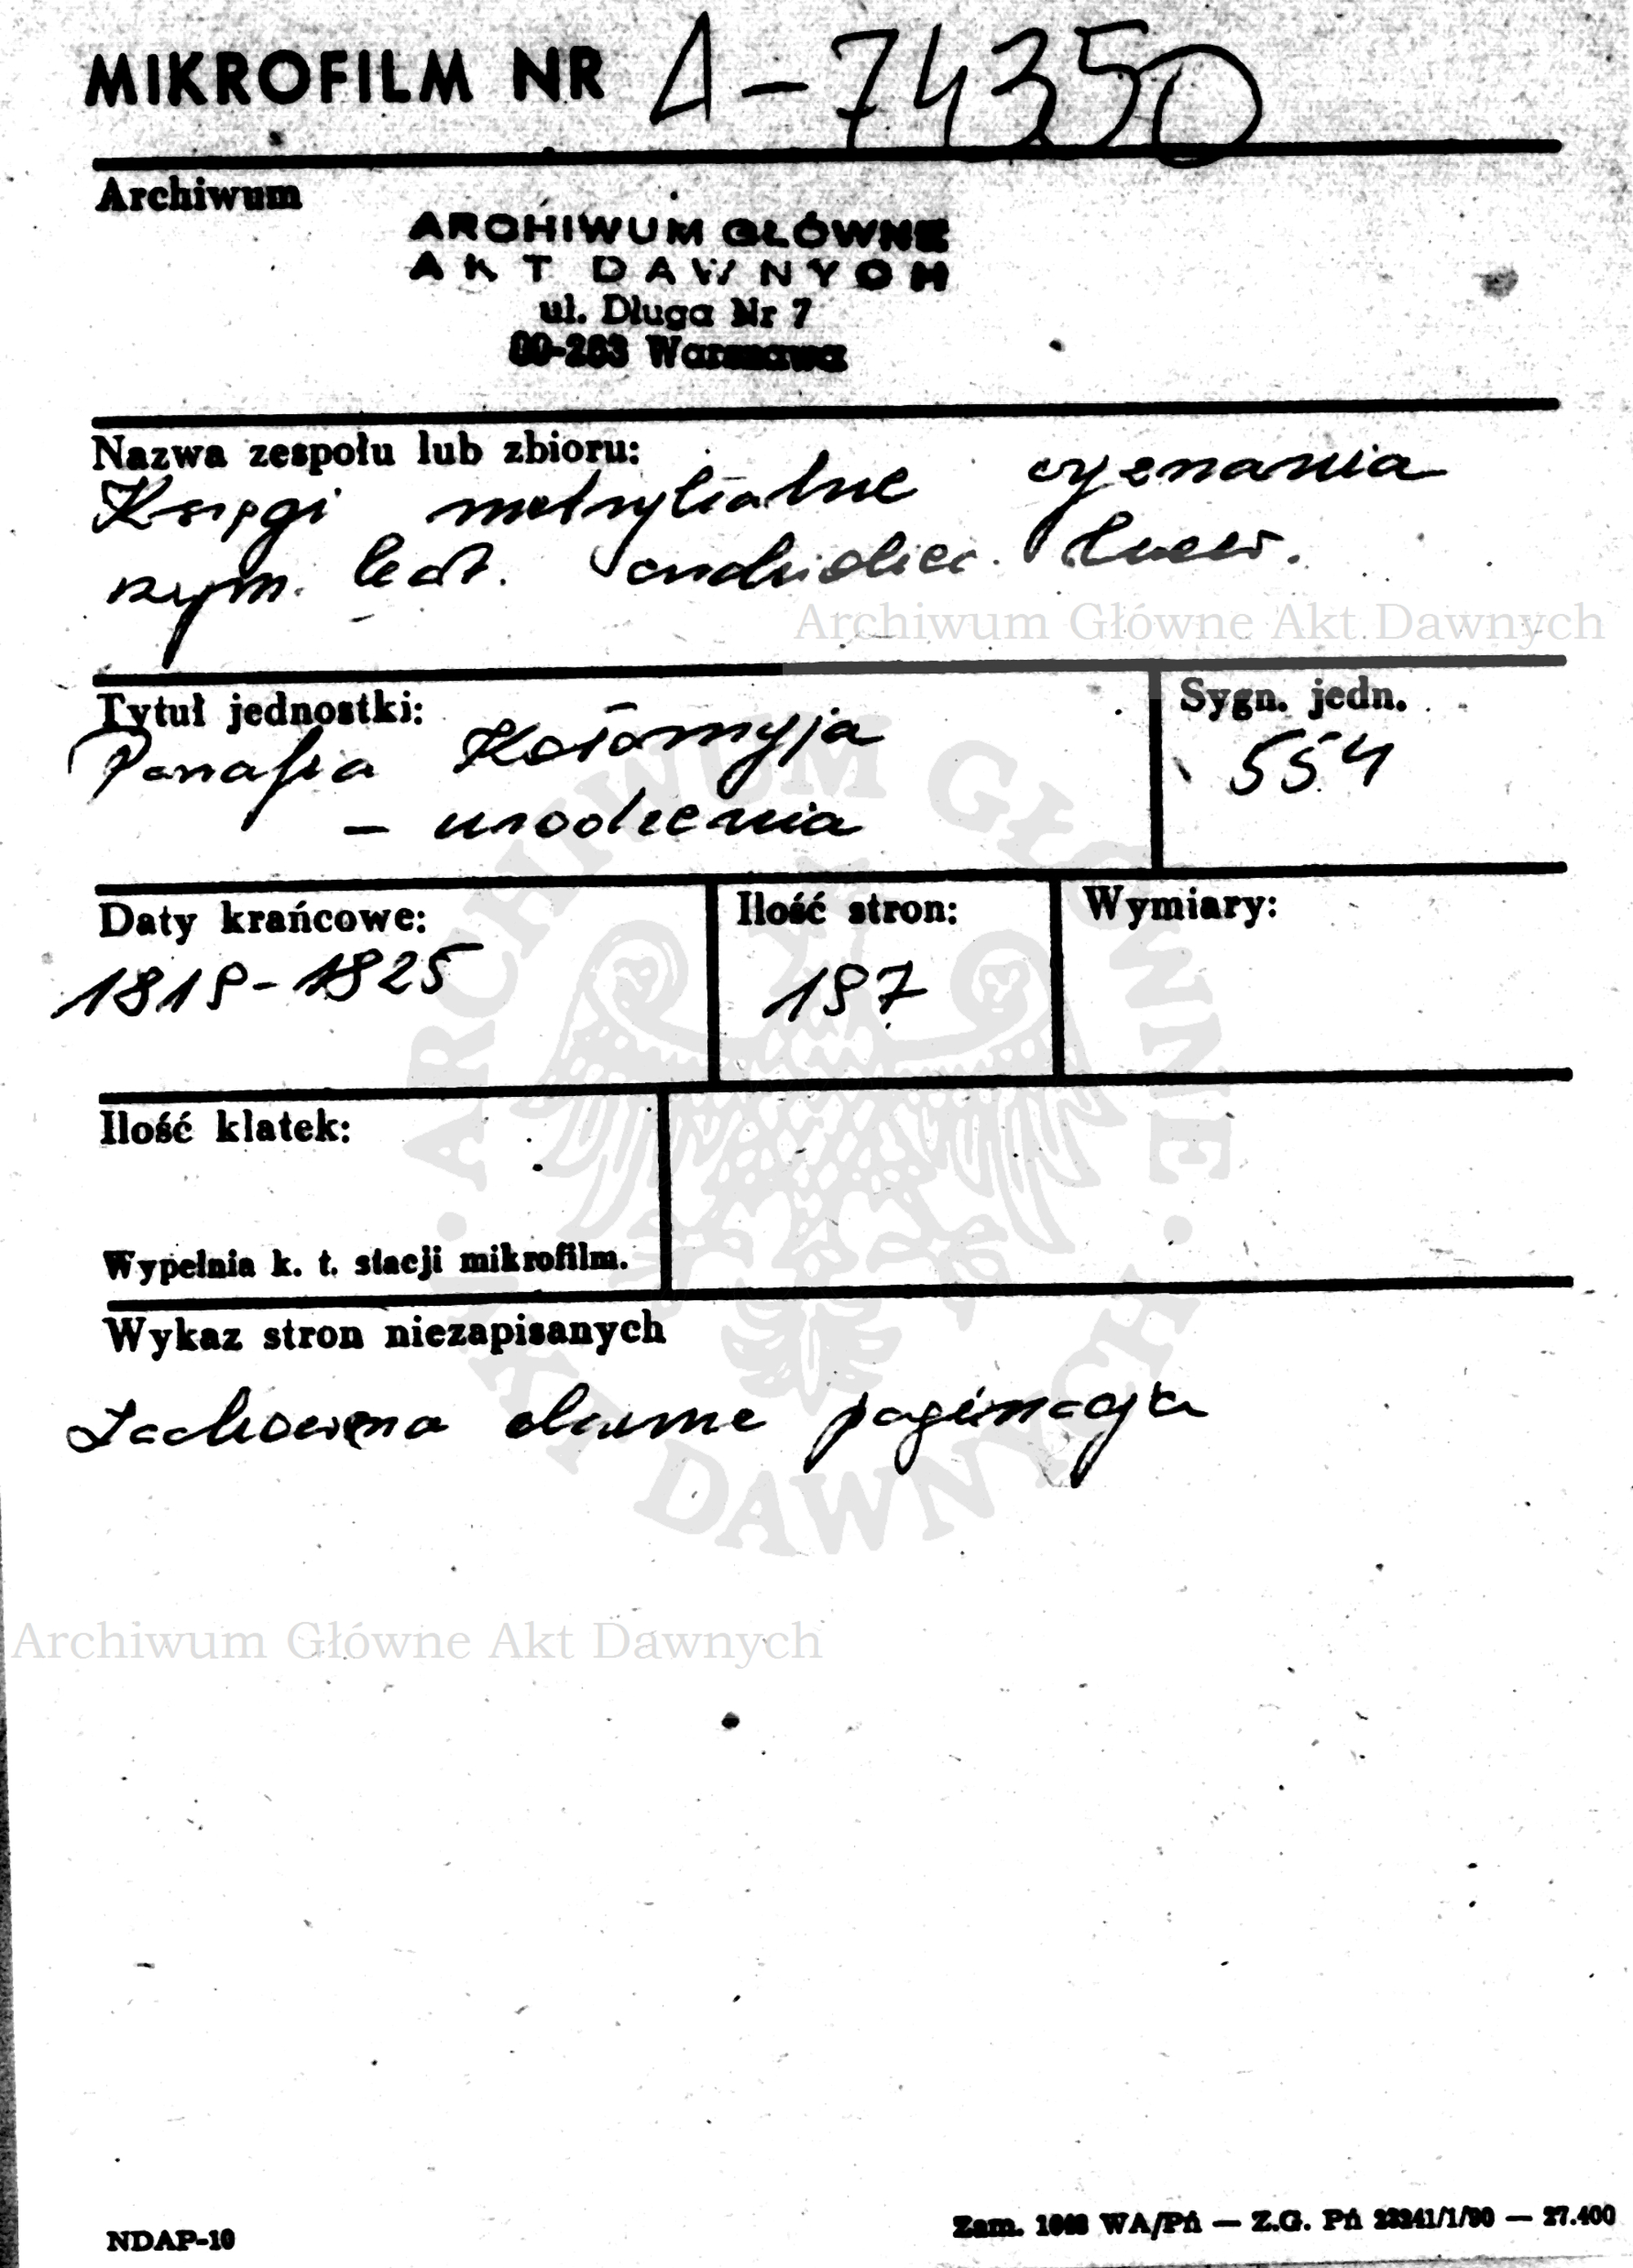 MIKROFILM NR A-74350
Archiwum
ARCHIWUM GŁÓWNE
AKT DAWNYCH
ul. Długa Nr 7
00-263 Warszawa
Nazwa zespołu lub zbioru:
Księgi metrykalne wyznania
rzym. kat. archidiec. Lwow.
Archiwum Główne Akt Dawnych
Tytuł jednostki:
Parafia Kołomyja
- urodzenia
Sygn. jedn.
554
Daty krańcowe:
1819-1825
Ilość stron:
197
Wymiary:
Ilość klatek:
Wypełnia k. t. stacji mikrofilm.
Wykaz stron niezapisanych
Zachowano dawne paginacja
ARCHIWUM GŁÓWNE AKT DAWNYCH
Archiwum Główne Akt Dawnych
NDAP-10
Zam. WA/Pń — Z.G. Pń — 27.400